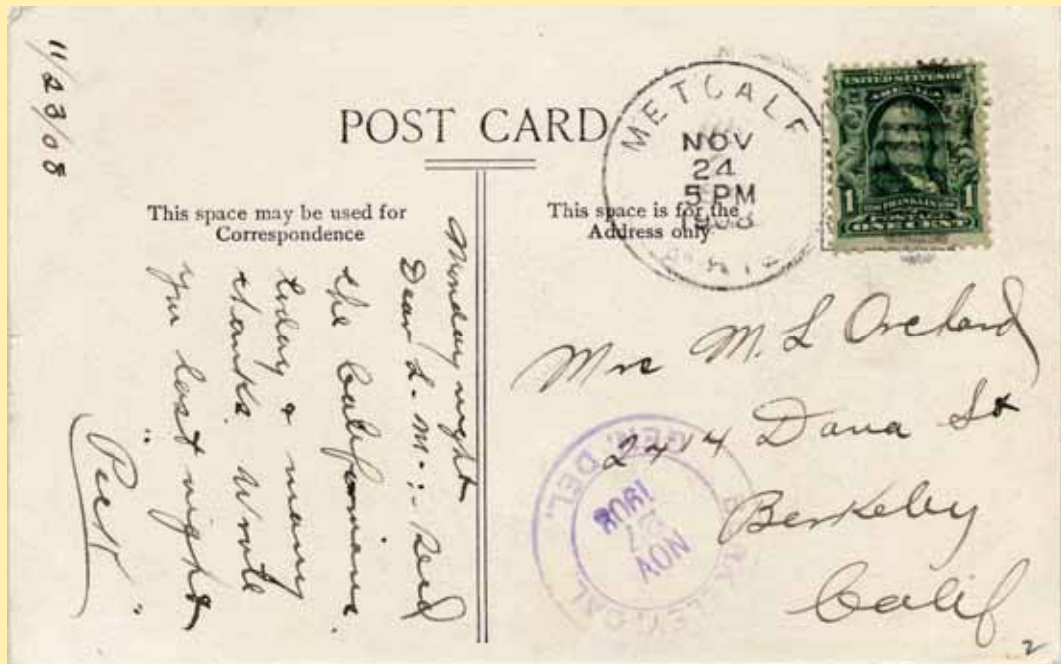 11/23/08
POST CARD
This space may be used for
Correspondence
This space is for the
Address only
METCALF
NOV
24
5 PM
1908
ARIZ.
UNITED STATES OF
AMERICA
1 1
FRANKLIN
POSTAGE
ONE CENT
Monday night
Dear L. M. :- Recd
the Californians
today & many
thanks. Wrote
you last night
"Pick"
Mrs M. L Orchard
2414 Dana St
Berkeley
Calif
BERKELEY, CAL.
GEN. DEL.
NOV
27
1908
2